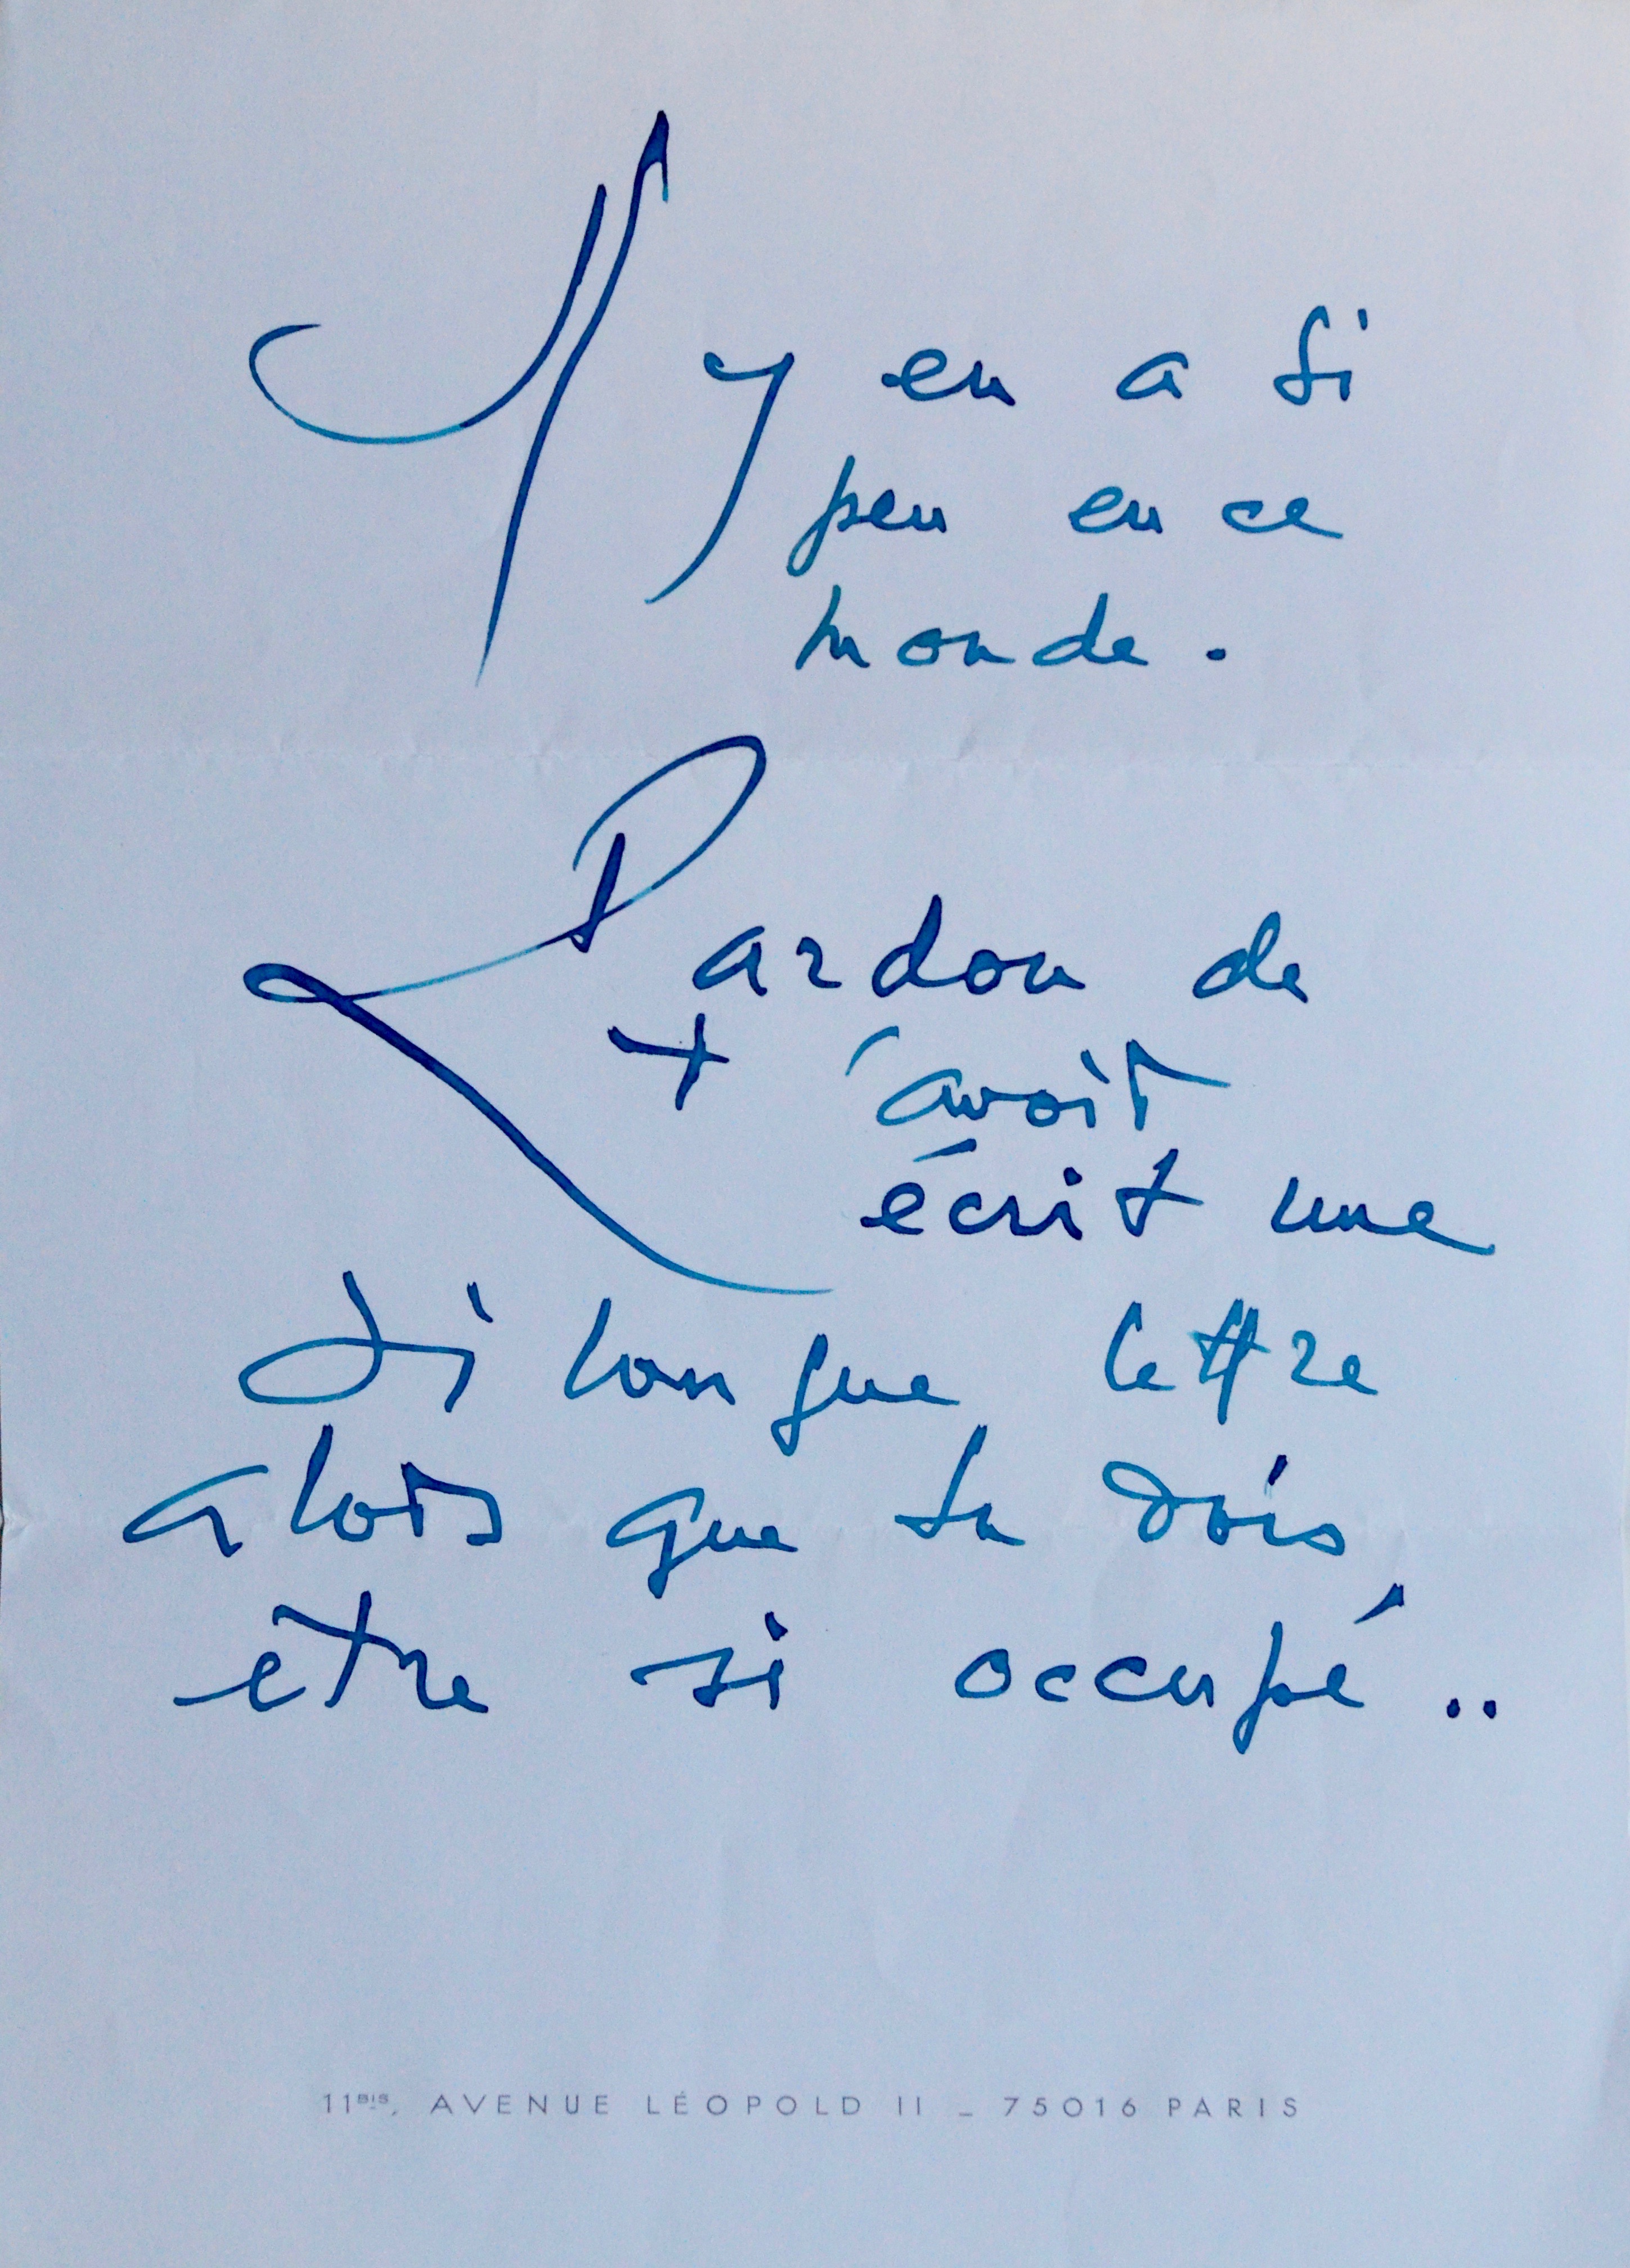 Il y en a si
peu en ce
monde.
Pardon de
t'avoir
écrit une
si longue lettre
alors que tu dois
être si occupé..
11BIS, AVENUE LÉOPOLD II _ 75016 PARIS